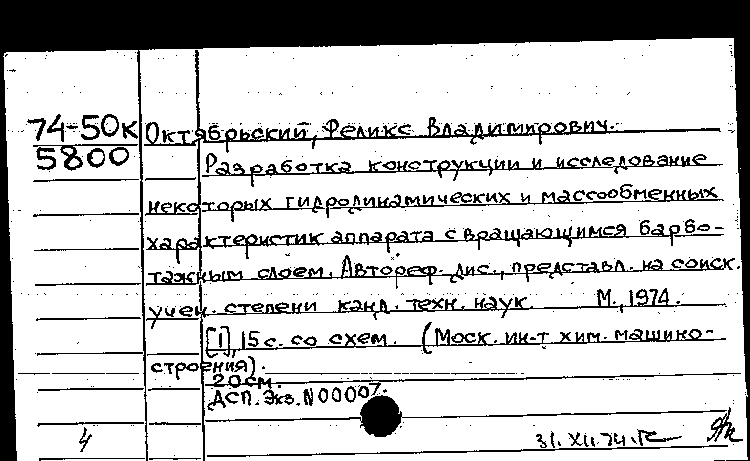 74-50к Октябрьский, Феликс Владимирович.
5800 Разработка конструкции и исследование
некоторых гидродинамических и массообменных
характеристик аппарата с вращающимся барбо-
тажным слоем. Автореф. дис., представл. на соиск.
учен. степени канд. техн. наук. М., 1974.
[1], 15 с. со схем. (Моск. ин-т хим. машино-
строения).
20 см.
ДСП. Экз. N 00007.
4 31. XII. 74. г.